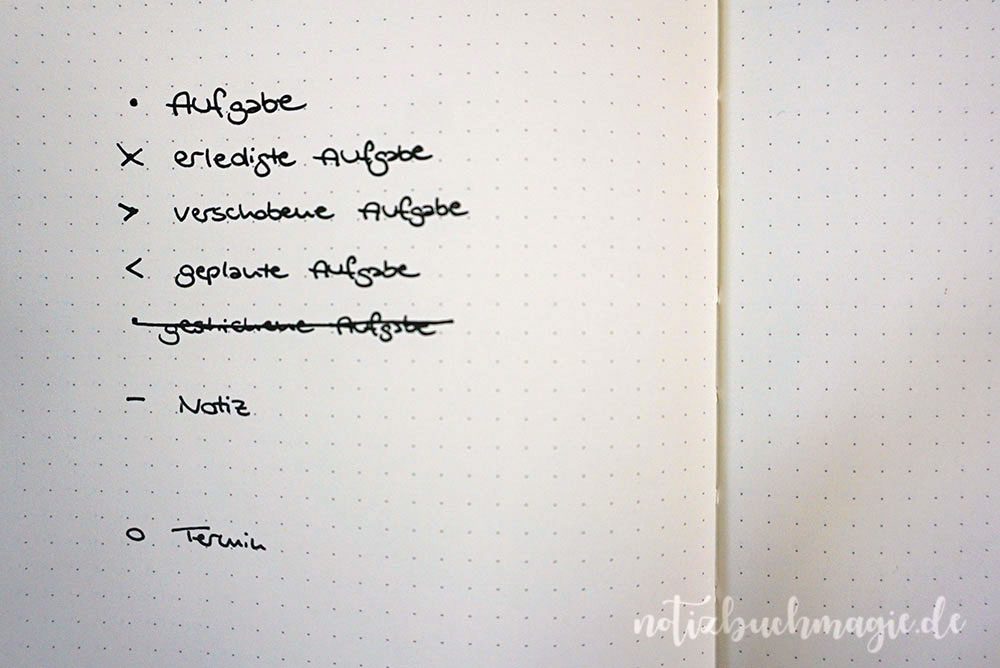 • Aufgabe
× erledigte Aufgabe
> verschobene Aufgabe
< geplante Aufgabe
• gestrichene Aufgabe
– Notiz
o Termin
notizbuchmagie.de